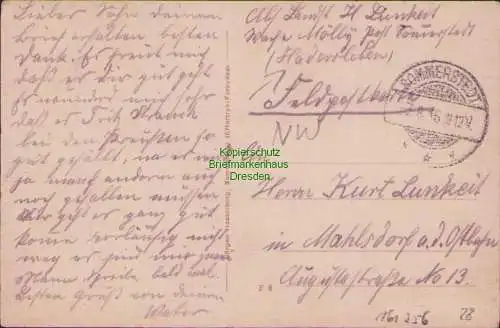 Lieber Sohn deinen
Brief erhalten besten
Dank. Es freut mich
daß es dir gut geht
Es wundert mich sehr
daß es Fritz
bei den Preußen so
gut gefällt, na er
ja manch andern auch
noch gefallen müssen
Mir geht es ganz gut
komme vorläufig nicht
weg es sind mir zwei
Mann Schreibe bald mal.
Besten Gruß von deinem
Vater
Abs Landst H Lunkeit
Wache Mölby Post Sommerstedt
(Hadersleben)
Feldpostkarte
SOMMERSTEDT
NW
Kopierschutz
Briefmarkenhaus
Dresden
An
Herrn Kurt Lunkeit
in Mahlsdorf a.d. Ostbahn
Augustastraße No 13.
161 256
28